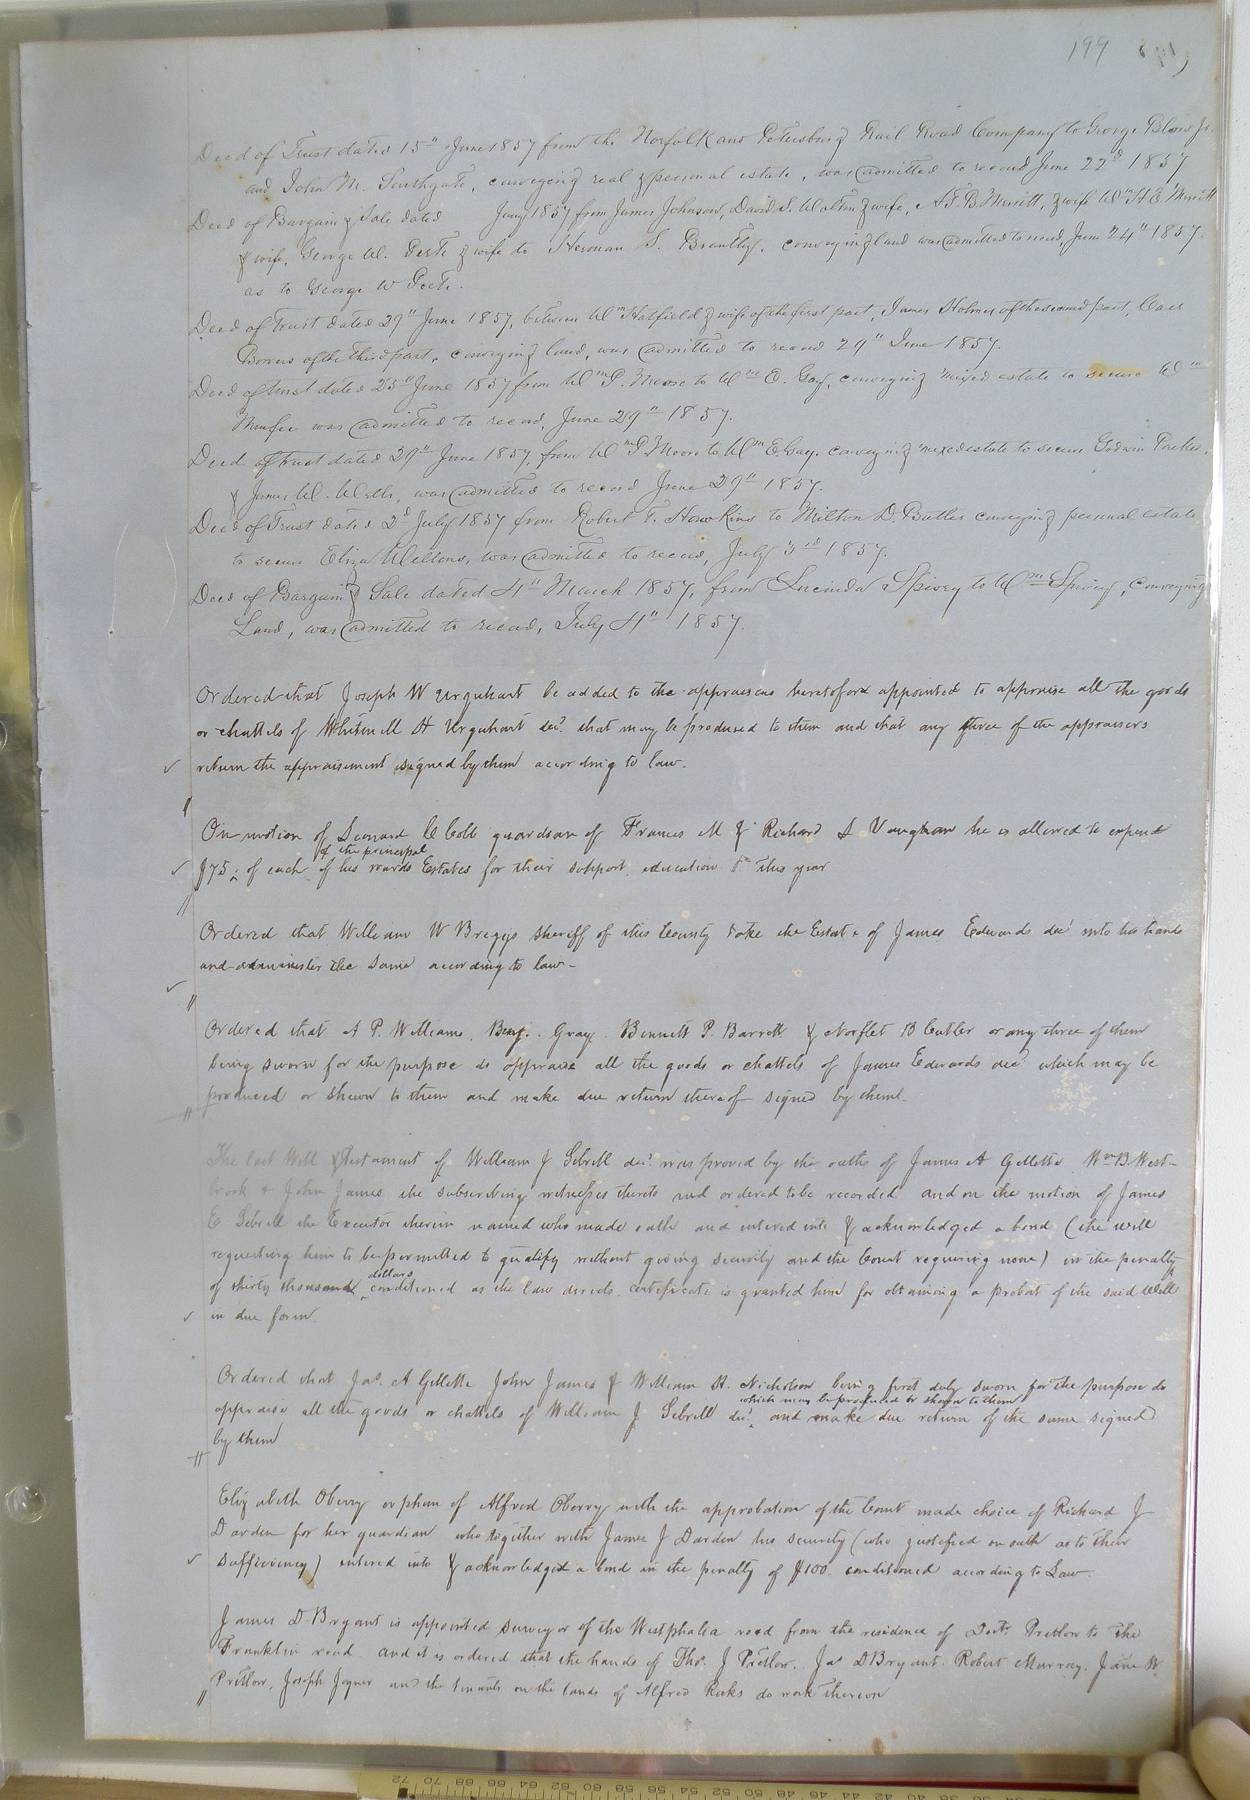 199
Deed of Trust dated 15" June 1857 from the Norfolk and Petersburg Rail Road Company to George Blow Jr.
and John M. Southgate, conveying real & personal estate, was admitted to record June 22d 1857
Deed of Bargain & Sale dated Jany 1857 from James Johnson, David S. Walton & wife, A.F.B. Merritt, & wife Wm H E Merritt
& wife, George W. Peete & wife to Herman S. Brantly, conveying land was admitted to record, June 24" 1857.
as to George W Peete.
Deed of Trust dated 29" June 1857, between Wm Hatfield & wife of the first part, James Holmes of the second part,
of the third part, conveying land, was admitted to record 29" June 1857.
Deed of trust dated 25" June 1857 from Wm P. Moore to Wm E. Gay, conveying mixed estate to secure Wm
was admitted to record, June 29" 1857.
Deed of trust dated 29" June 1857, from Wm P. Moore to Wm E. Gay, conveying mixed estate to secure Godwin
& James W. Watts, was admitted to record June 29" 1857.
Deed of Trust dated 2d July 1857 from Robert T. Hawkins to Milton D. Butler conveying personal estate
to secure Eliza Wellons, was admitted to record, July 3rd 1857.
Deed of Bargain & Sale dated 4" March 1857, from Lucinda Spivey to Wm Spivey, conveying
Land, was admitted to record, July 4" 1857.
Ordered that Joseph W Urquhart be added to the appraisers heretofore appointed to appraise all the goods
or chattels of Whitmell H Urquhart decd that may be produced to them and that any three of the appraisers
return the appraisement signed by them according to law.
On motion of Leonard C Cobb guardian of Frances M & Richard L Vaughan he is allowed to expend
of the principal
$75 of each of his wards Estates for their support education &c this year
Ordered that William W Briggs Sheriff of this County take the Estate of James Edwards decd into his hands
and administer the same according to law -
Ordered that A P. Williams, Benj. Gray. Bennett P. Barrett & Norflet B Cutler or any three of them
being sworn for the purpose do appraise all the goods or chattels of James Edwards decd which may be
produced or shewn to them and make due return thereof signed by them.
The last Will & Testament of William J Sebrell decd was proved by the oaths of James A Gillette Wm B West-
brook & John James the subscribing witnesses thereto and ordered to be recorded and on the motion of James
E Sebrell the Executor therein named who made oath and entered into & acknowledged a bond (the will
requesting him to be permitted to qualify without giving security and the Court requiring none) in the penalty
dollars
of thirty thousand conditioned as the law directs certificate is granted him for obtaining a probat of the said Will
in due form
Ordered that Jas. A Gillette John James & William H. Nicholson being first duly sworn for the purpose do
which may be produced or shown to them
appraise all the goods or chattels of William J Sebrell decd. and make due return of the same signed
by them
Elizabeth Oberry orphan of Alfred Oberry with the approbation of the Court made choice of Richard J
Darden for her guardian who together with James J Darden his security (who justified on oath as to their
sufficiency) entered into & acknowledged a bond in the penalty of $100 conditioned according to Law.
James D Bryant is appointed surveyor of the Westphalia road from the residence of Doctr. Pretlow to the
Franklin road and it is ordered that the hands of Thos. J Pretlow. Jas D Bryant. Robert Murray. Jane W.
Pretlow, Joseph Joyner and the tenants on the lands of Alfred Ricks do work thereon
72 70 68 66 64 62 60 58 56 54 52 50 48 46 44 42 40 38 36 34